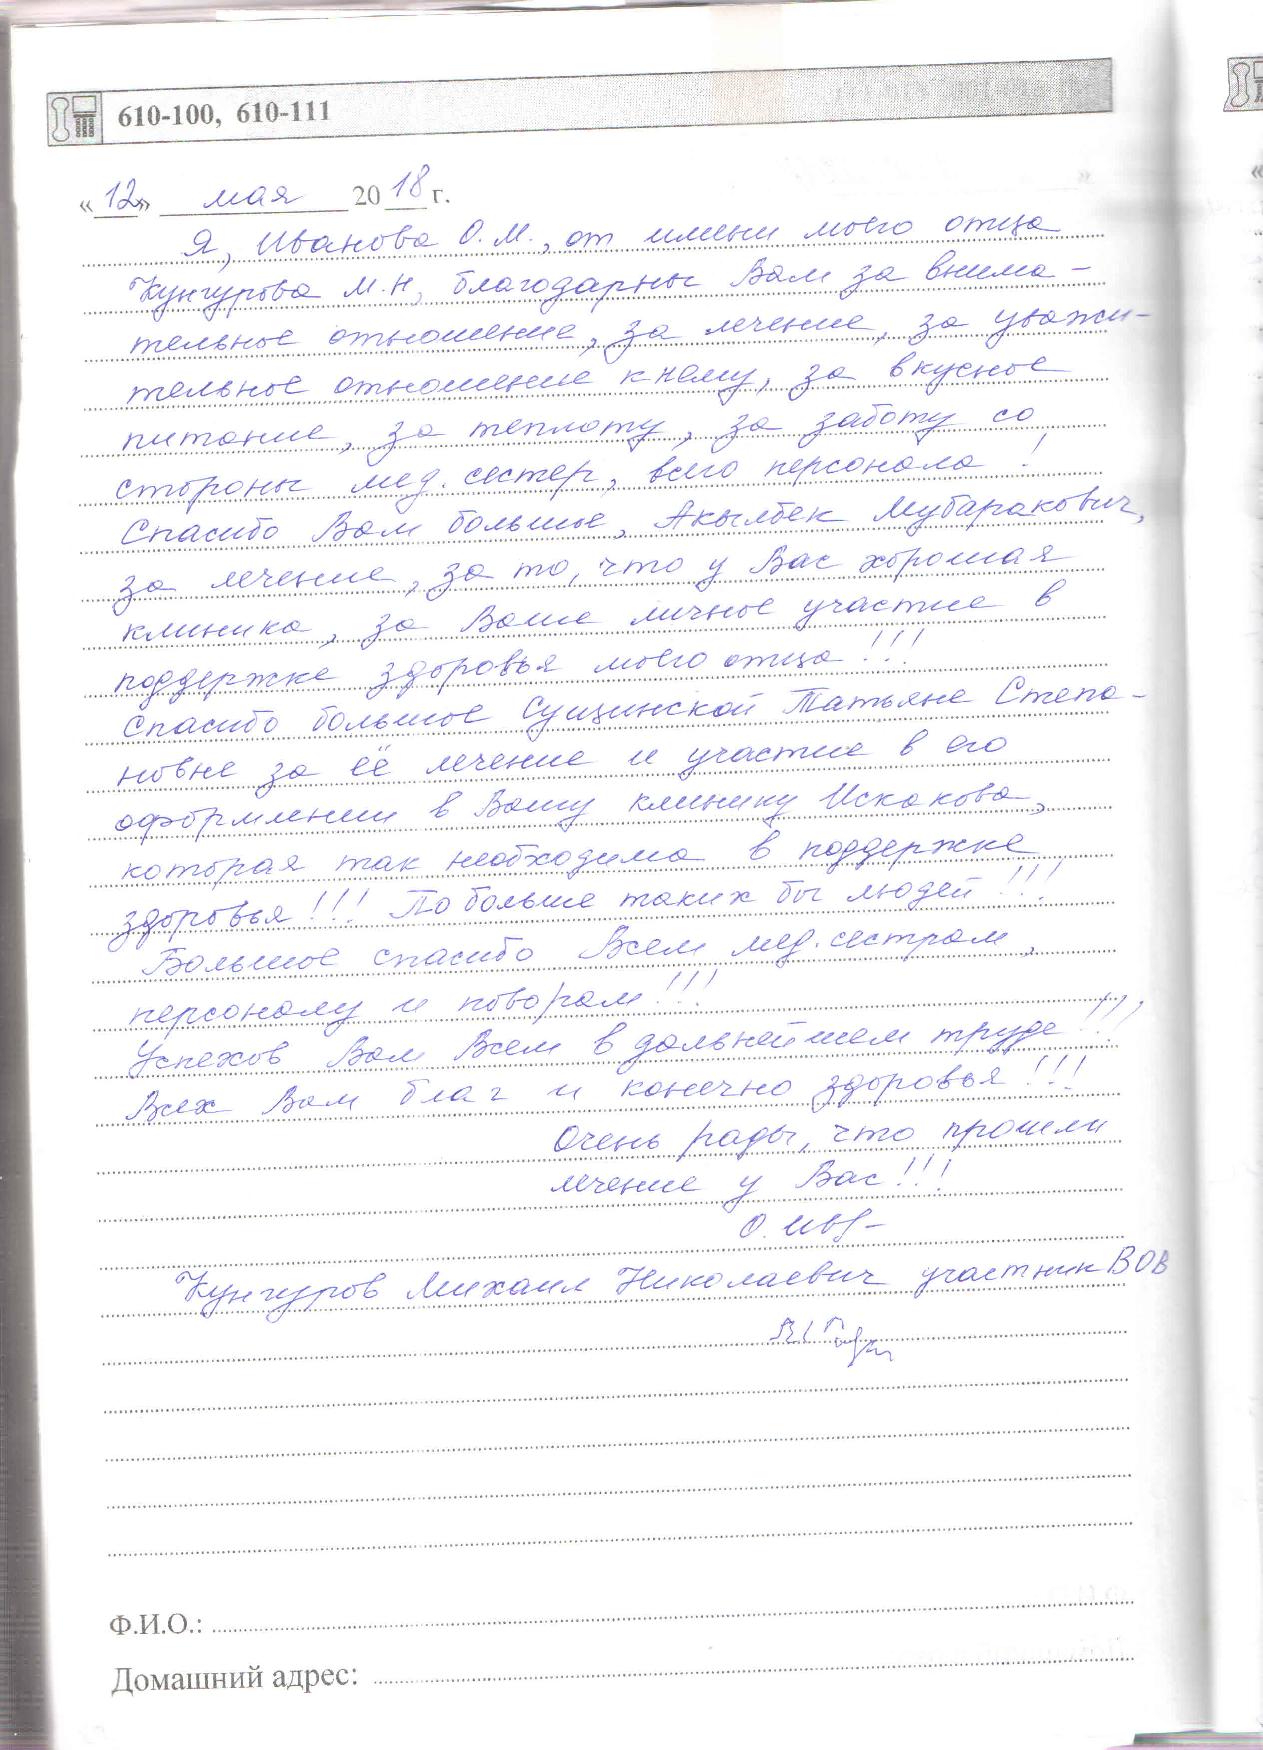 610-100, 610-111
«12» мая 2018 г.
Я, Иванова О.М., от имени моего отца
Кунгурова М.Н, благодарны Вам за внима-
тельное отношение, за лечение, за уважи-
тельное отношение к нему, за вкусное
питание, за теплоту, за заботу со
стороны мед. сестер, всего персонала!
Спасибо Вам большое, Акылбек Мубаракович,
за лечение, за то, что у Вас хорошая
клиника, за Ваше личное участие в
поддержке здоровья моего отца!!!
Спасибо большое Сущинской Татьяне Степа-
новне за её лечение и участие в его
оформлении в Вашу клинику Искакова,
которая так необходима в поддержке
здоровья!!! По больше таких бы людей!!!
Большое спасибо Всем мед. сестрам,
персоналу и поворам!!!
Успехов Вам Всем в дальнейшем труде!!!
Всех Вам благ и конечно здоровья!!!
Очень рады, что прошли
лечение у Вас!!!
Кунгуров Михаил Николаевич участник ВОВ
Ф.И.О.:
Домашний адрес: